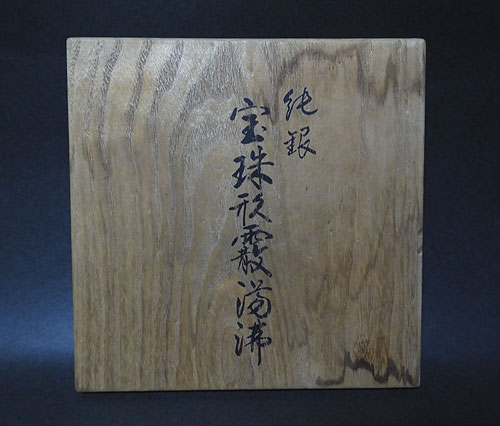 純銀
宝珠形霰湯沸